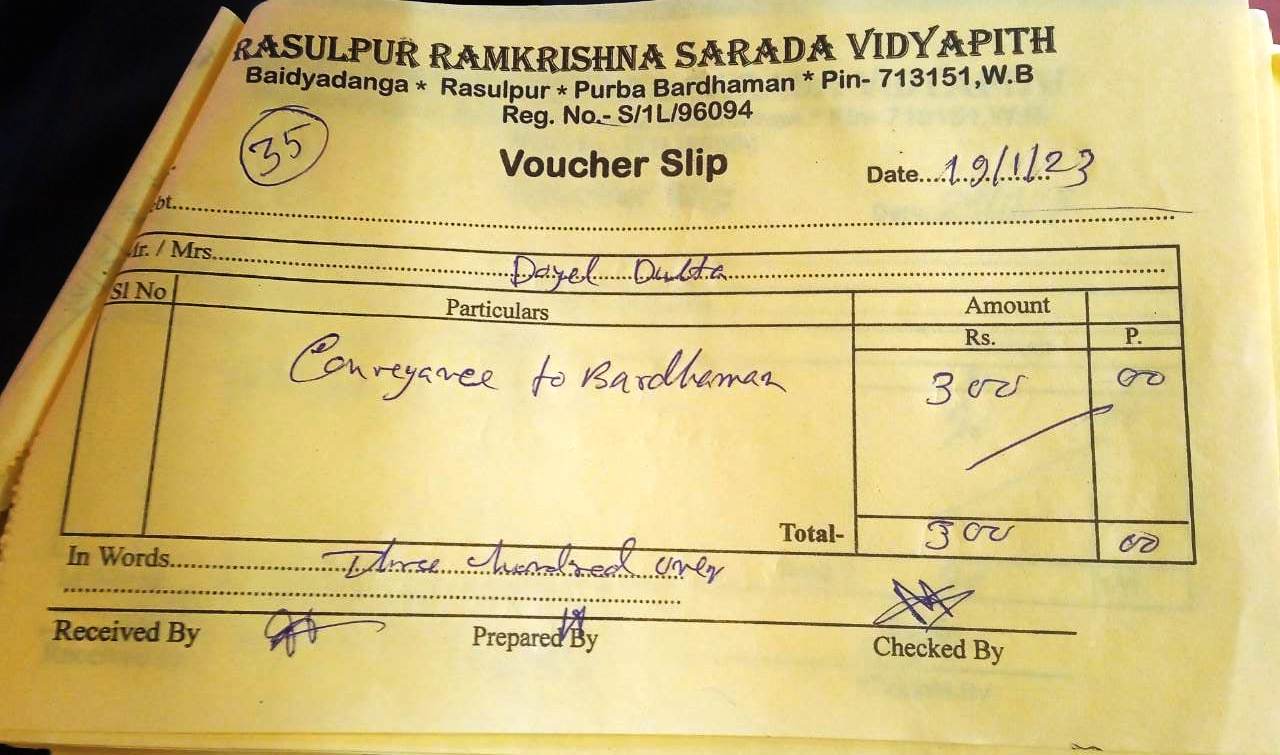 RASULPUR RAMKRISHNA SARADA VIDYAPITH
Baidyadanga * Rasulpur * Purba Bardhaman * Pin- 713151,W.B
Reg. No.- S/1L/96094
35
Voucher Slip
Date....19/1/23
bt....
Mr. / Mrs.... Dayel Dutta
Sl No Particulars Amount
Rs. P.
Conveyance to Bardhaman 300 00
Total- 300 00
In Words.... Three hundred only
Received By Prepared By Checked By